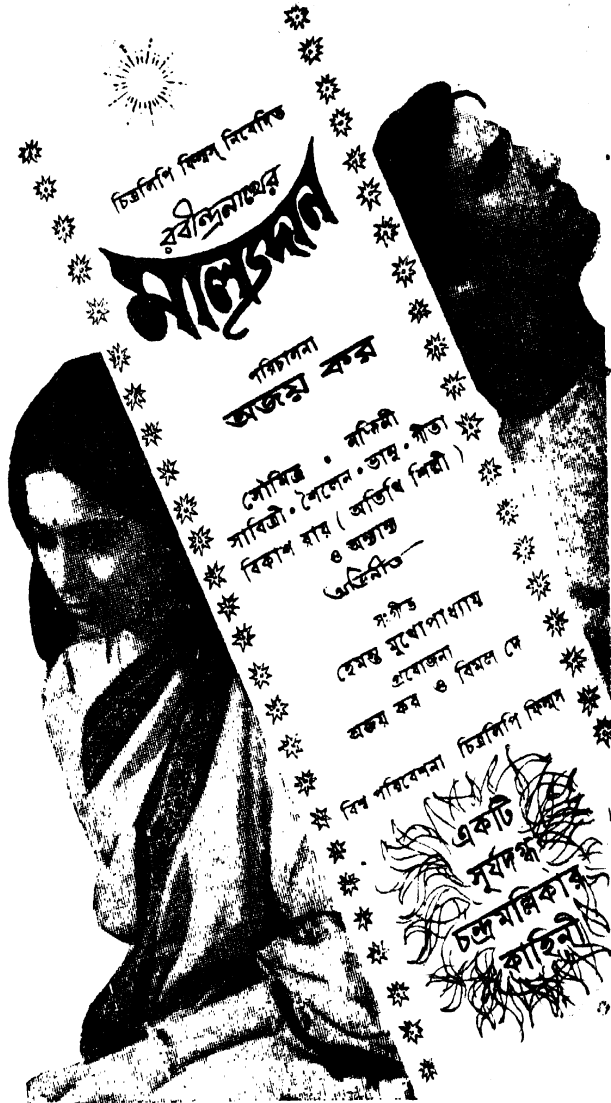 চিত্রলিপি ফিল্মস্ নিবেদিত
রবীন্দ্রনাথের
মাল্যদান
পরিচালনা
অজয় কর
সৌমিত্র · নন্দিনী
সাবিত্রী · শৈলেন · ভানু · গীতা
বিকাশ রায় ( অতিথি শিল্পী )
ও অন্যান্য
অভিনীত
সংগীত
হেমন্ত মুখোপাধ্যায়
প্রযোজনা
অজয় কর ও বিমল দে
বিশ্ব পরিবেশনা চিত্রলিপি ফিল্মস
একটি
সূর্যদগ্ধ
চন্দ্রমল্লিকার
কাহিনী